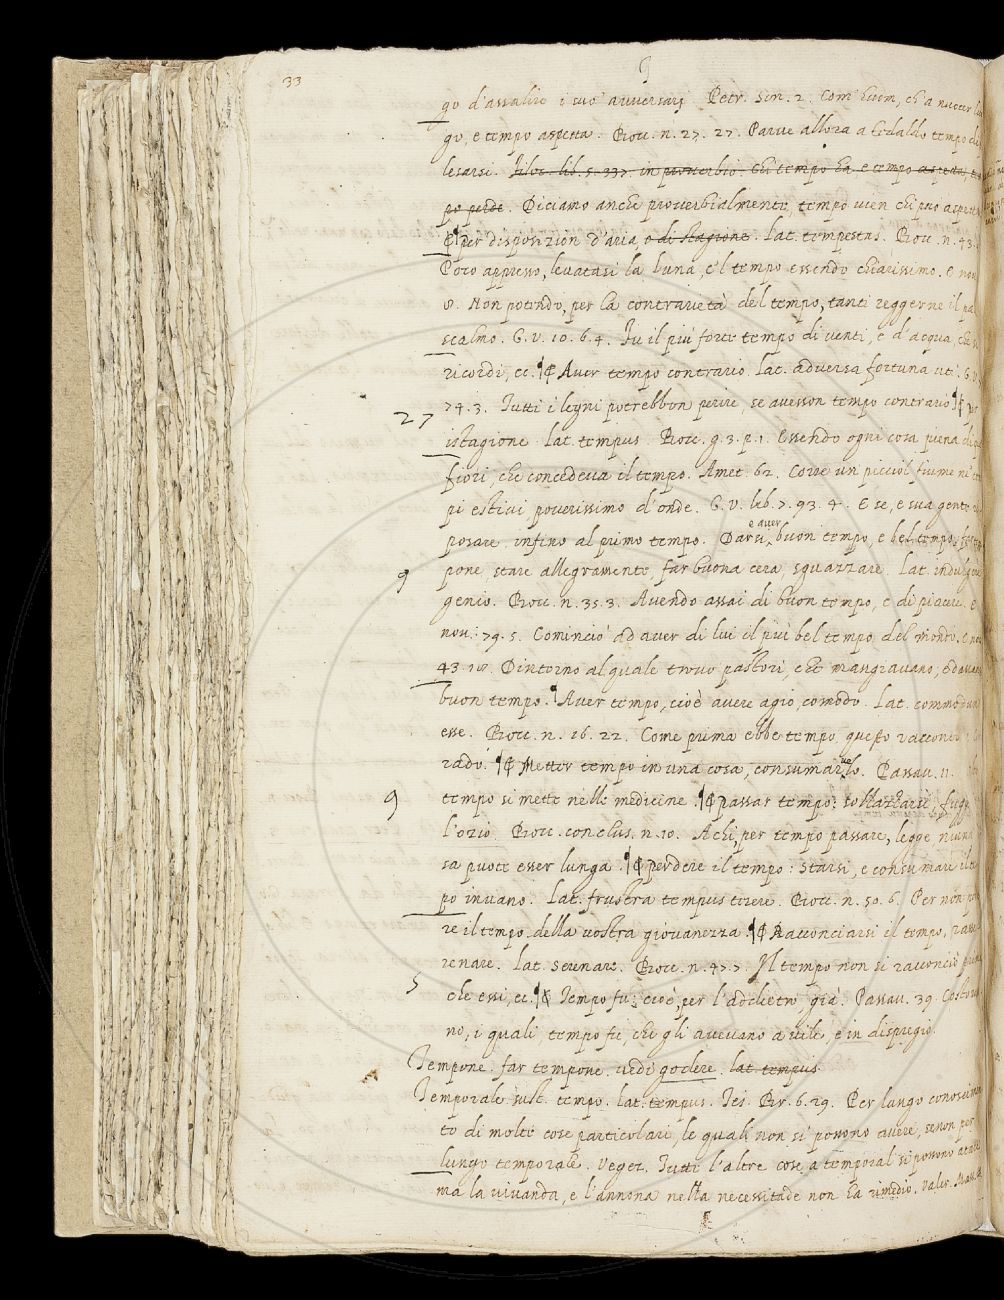 33
T
go d'assalire i suo' avversarj Petr. Son. 2. Com' huom, ch'a nuocer
go, e tempo aspetta. Bocc. n. 27. 27. Parue allora a Tedaldo tempo di
lesarsi. filoc. lib. 5. 337. in prouerbio. Chi tempo ha e tempo aspetta,
po perde. Diciamo anche prouerbialmente, tempo uien chi può aspetta
¶ per disposizion d'aria, o di stagione. Lat. tempestas. Bocc. n. 43.
Poco appresso, leuatasi la luna, e 'l tempo essendo chiarissimo. E nou
8. Non potendo, per la contrarietà del tempo, tanti reggerne il pa
scalmo. G. V. 10. 6. 4. Fu il più forte tempo di uenti, e d'acqua, che
ricordi, ec. ¶ Auer tempo contrario. Lat. aduersa fortuna uti. G. V.
74. 3. Tutti i legni potrebbon perire, se auesson tempo contrario ¶ per
27
istagione. Lat. tempus. Bocc. g. 3. p. 1. Essendo ogni cosa piena di
fiori, che concedeua il tempo. Amet. 62. Corre un picciol fiume ne'
pi estiui pouerissimo d'onde. G. V. lib. 7. 93. 4. E se, e sua gente
posare infino al primo tempo. Darsi, e auer buon tempo, e bel tempo,
9
pone, stare allegramente, far buona cera, sguazzare. Lat. indulgere
genio. Bocc. n. 35. 3. Auendo assai di buon tempo, e di piacere. E
nou. 79. 5. Cominciò ad auer di lui il più bel tempo del mondo. E nou
43. 18. Dintorno al quale trouò pastori, che mangiauano, e dauansi
buon tempo. ¶ Auer tempo, cioè auere agio, comodo. Lat. commodum
esse. Bocc. n. 16. 22. Come prima ebbe tempo, questo raccontò
rado. ¶ Metter tempo in una cosa, consumaruelo. Passau. 11.
9
tempo si mette nelle medicine. ¶ passar tempo: sollazzarsi, fuggir
l'ozio. Bocc. conclus. n. 10. A chi, per tempo passare, legge, niuna
sa puote esser lunga. ¶ perdere il tempo: starsi, e consumare il te
po inuano. Lat. frustra tempus terere. Bocc. n. 50. 6. Per non per
re il tempo della uostra giouanezza. ¶ Racconciarsi il tempo, rasse
renare. Lat. serenare. Bocc. n. 47. 7. Il tempo non si racconciò prima
5
che essi, ec. ¶ Tempo fu: cioè, per l'addietro, già. Passau. 39. Costoro
no, i quali, tempo fu, che gli aueuano a uile, e in dispregio.
Tempone. far tempone. uedi godere. lat. tempus.
Temporale. sust. tempo. Lat. tempus. Tes. Br. 6. 29. Per lungo conoscimen
to di molte cose particolari, le quali non si possono auere, se non per
lungo temporale. Veget. Tutte l'altre cose a temporal si possono atare
ma la uiuanda, e l'annona nella necessitade non ha rimedio. Valer. Mass.